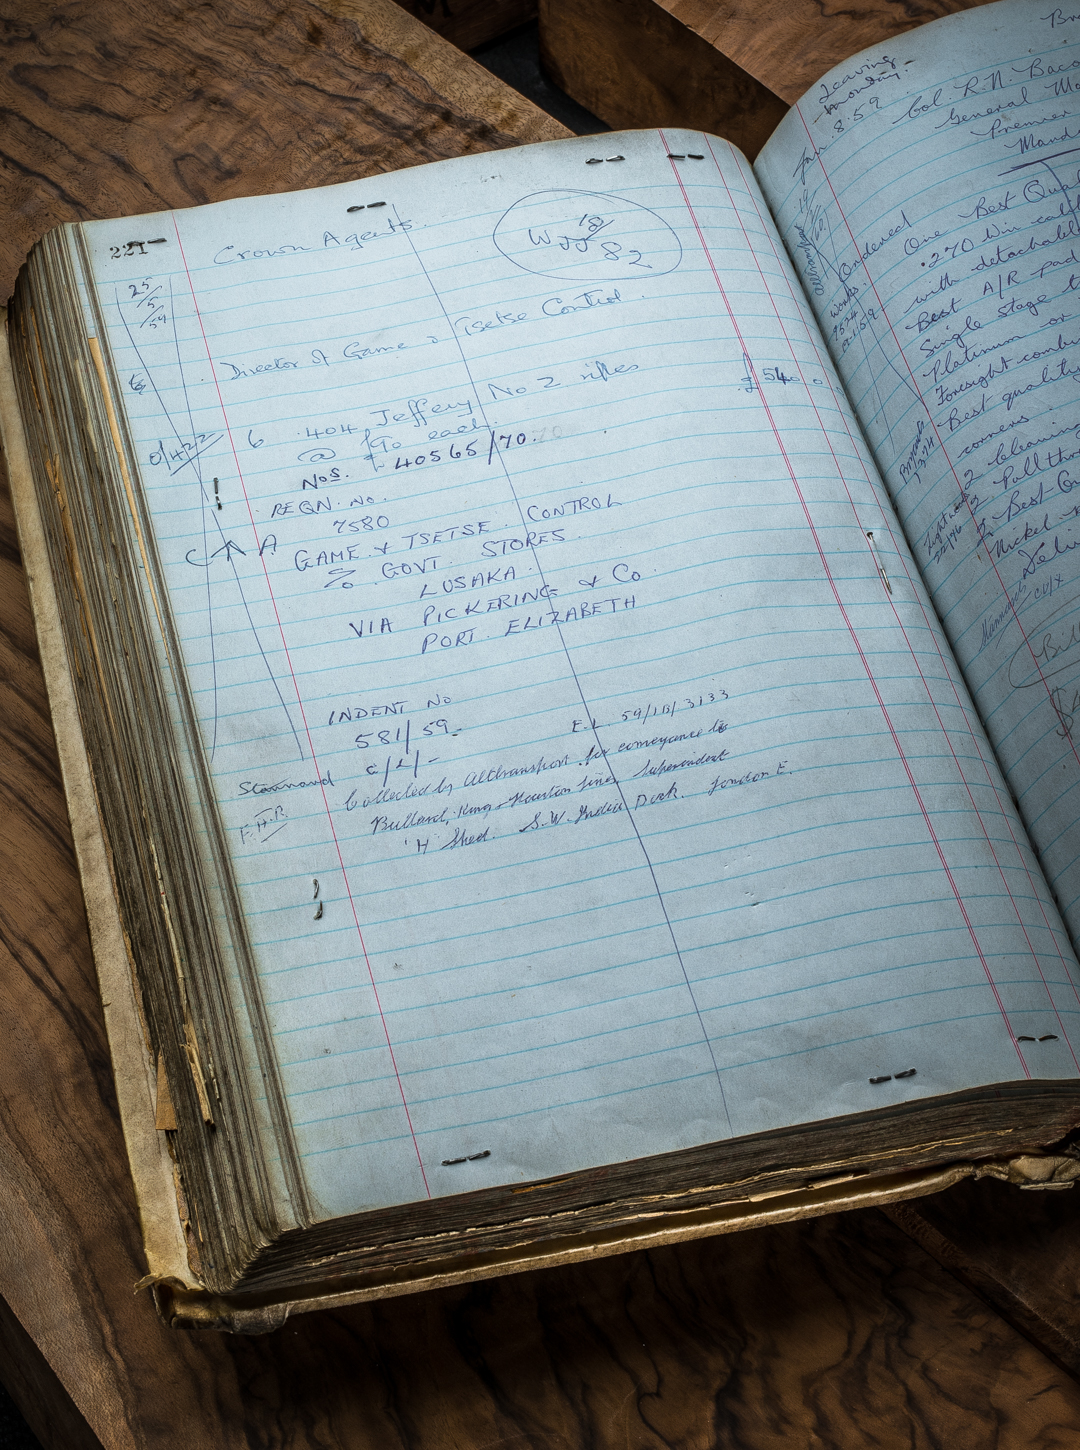 221
Crown Agents.
W JJ 18/
82
25/
5/
59
Director of Game & Tsetse Control.
6 .404 Jeffery No 2 rifles
£540 0.
@ £90 each.
O/1422
Nos. 40565/70.
REQN. No.
7580
C A
GAME & TSETSE CONTROL
% GOVT. STORES
LUSAKA.
VIA PICKERING & Co.
PORT. ELIZABETH
INDENT No
581/59.
E.L. 59/1B/3133
c/L/-
Stannard
F.H.R.
Collected by Alltransport for conveyance to
Bullard, King & Houston Line, Superintendent
'H' Shed. S.W. India Dock. London E.
Leaving
Monday.
Jan 8.59
Col. R.N. Baco
General Ma
Premier
Mand
Ordered One Best Qual
.270 Win cali
with detachabl
Best A/R pad
Single Stage t
Platinum or
Foresight comb
Best quality
corners.
2 cleaning
2 Pull thro
1 Best Qu
Nickel